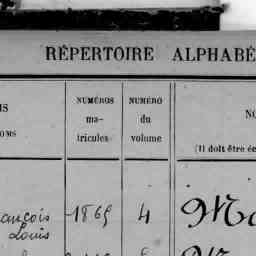 RÉPERTOIRE ALPHABÉ
NUMÉROS
ma-
tricules
NUMÉRO
du
volume
(Il doit être éc
ançois
Louis
1869
4
Ma